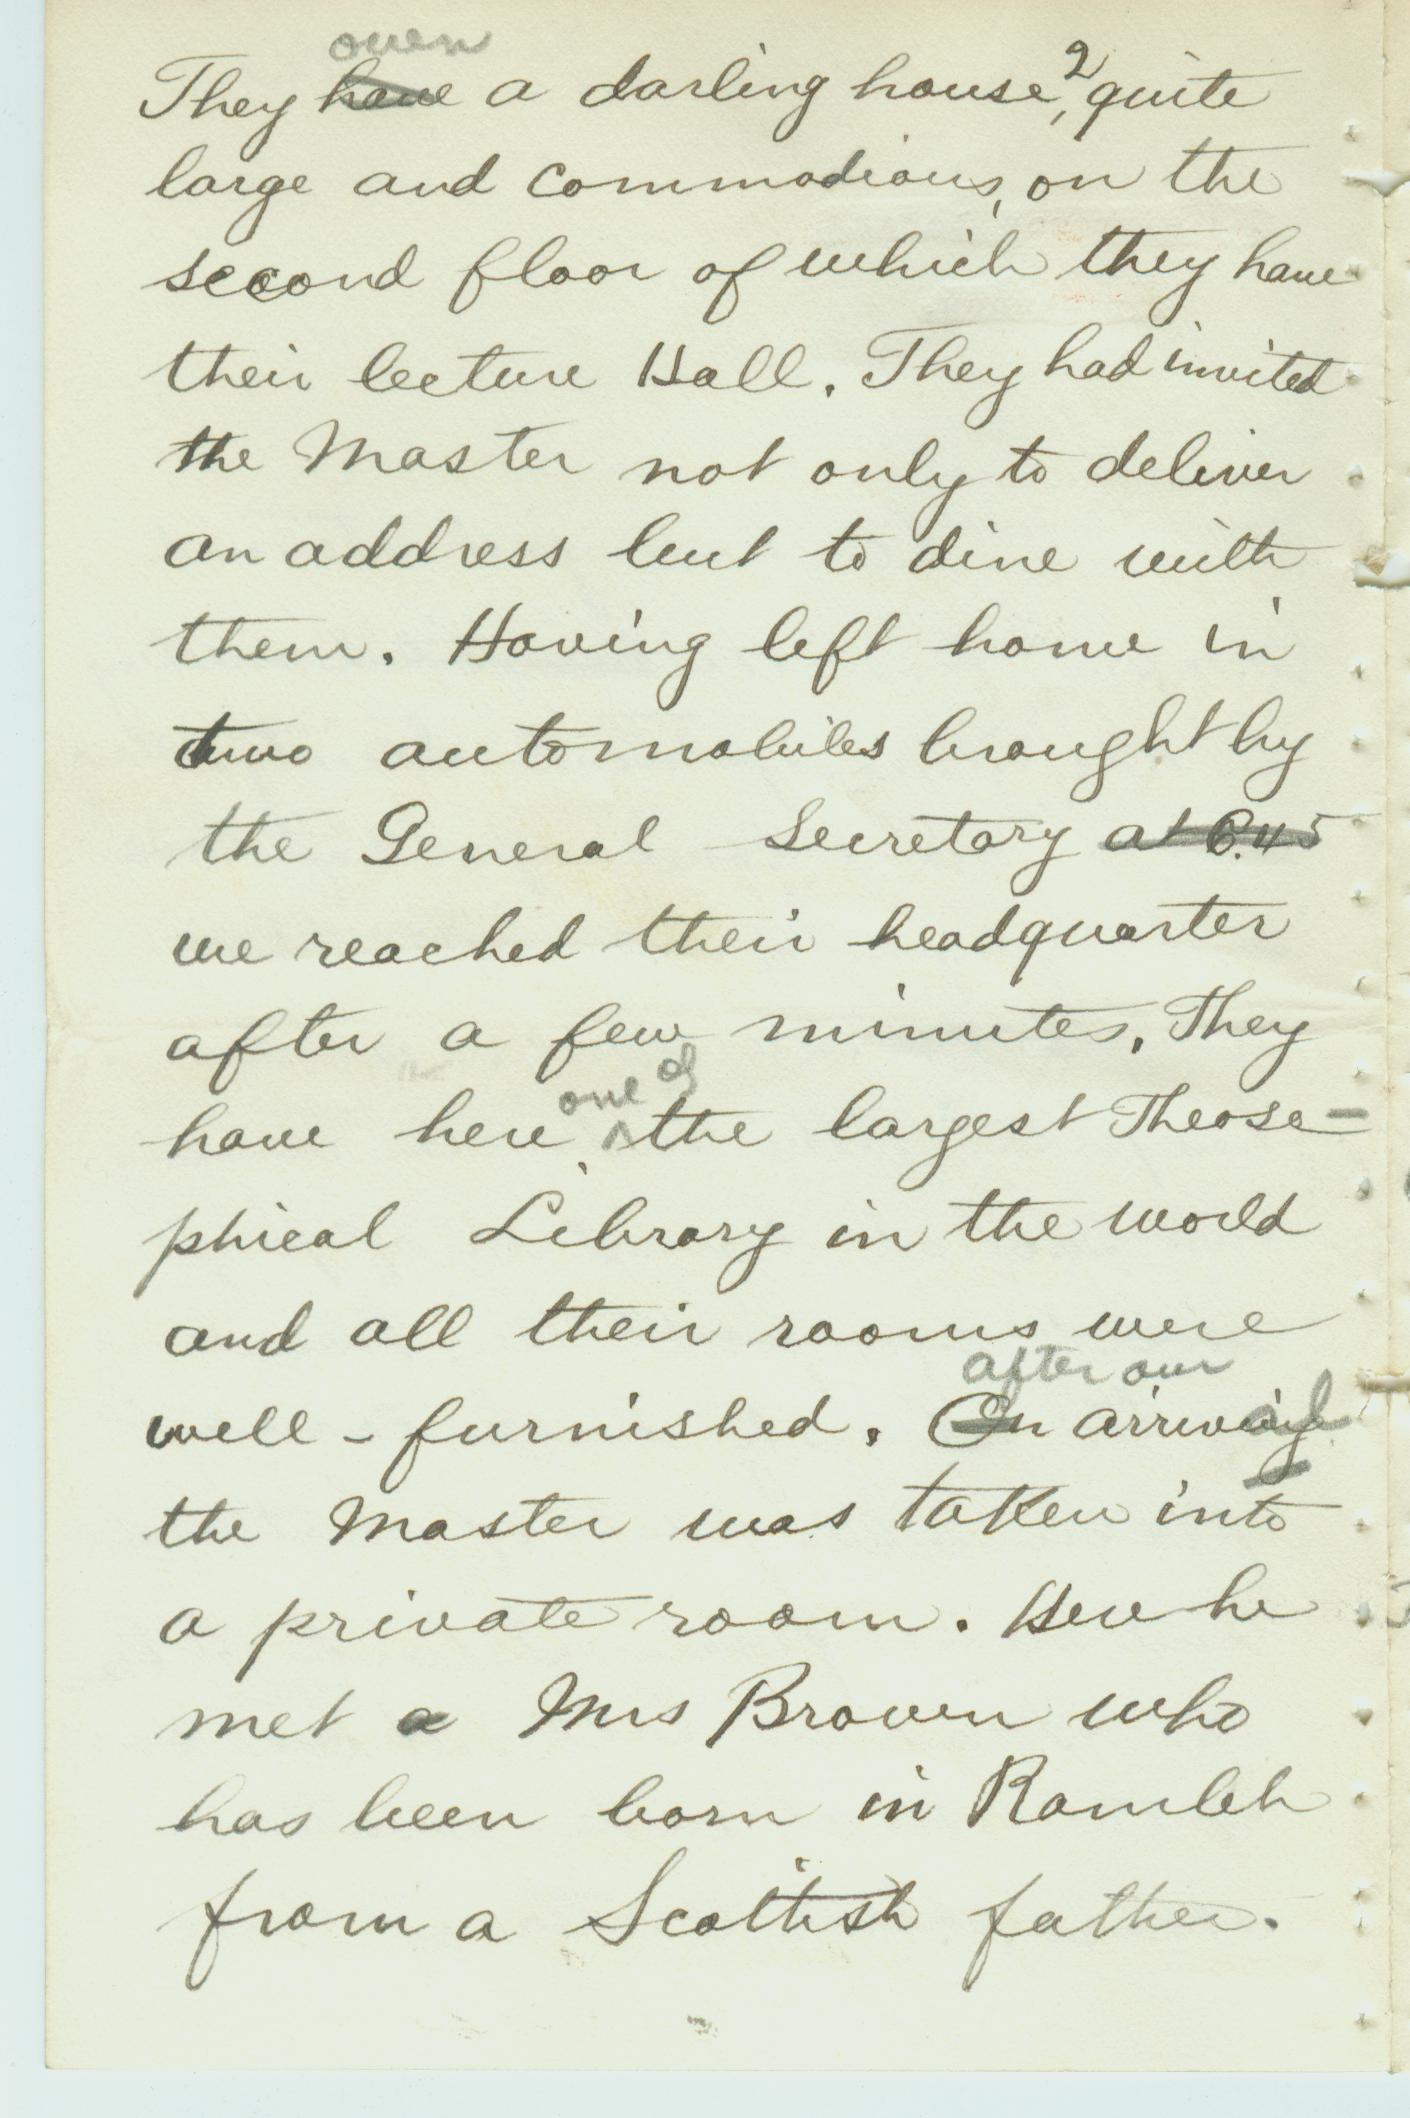 own
They have a darling house,2 quite
large and commodious, on the
second floor of which they have
their lecture Hall. They had invited
the Master not only to deliver
an address but to dine with
them. Having left home in
two automobiles brought by
the General Secretary at 6.45
we reached their headquarter
after a few minutes. They
one of
have here, the largest Theose-
phical Library in the world
and all their rooms were
after our
well-furnished. On arriving
the Master was taken into
a private room. Here he
met a Mrs Brown who
has been born in Ramleh
from a Scottish father.